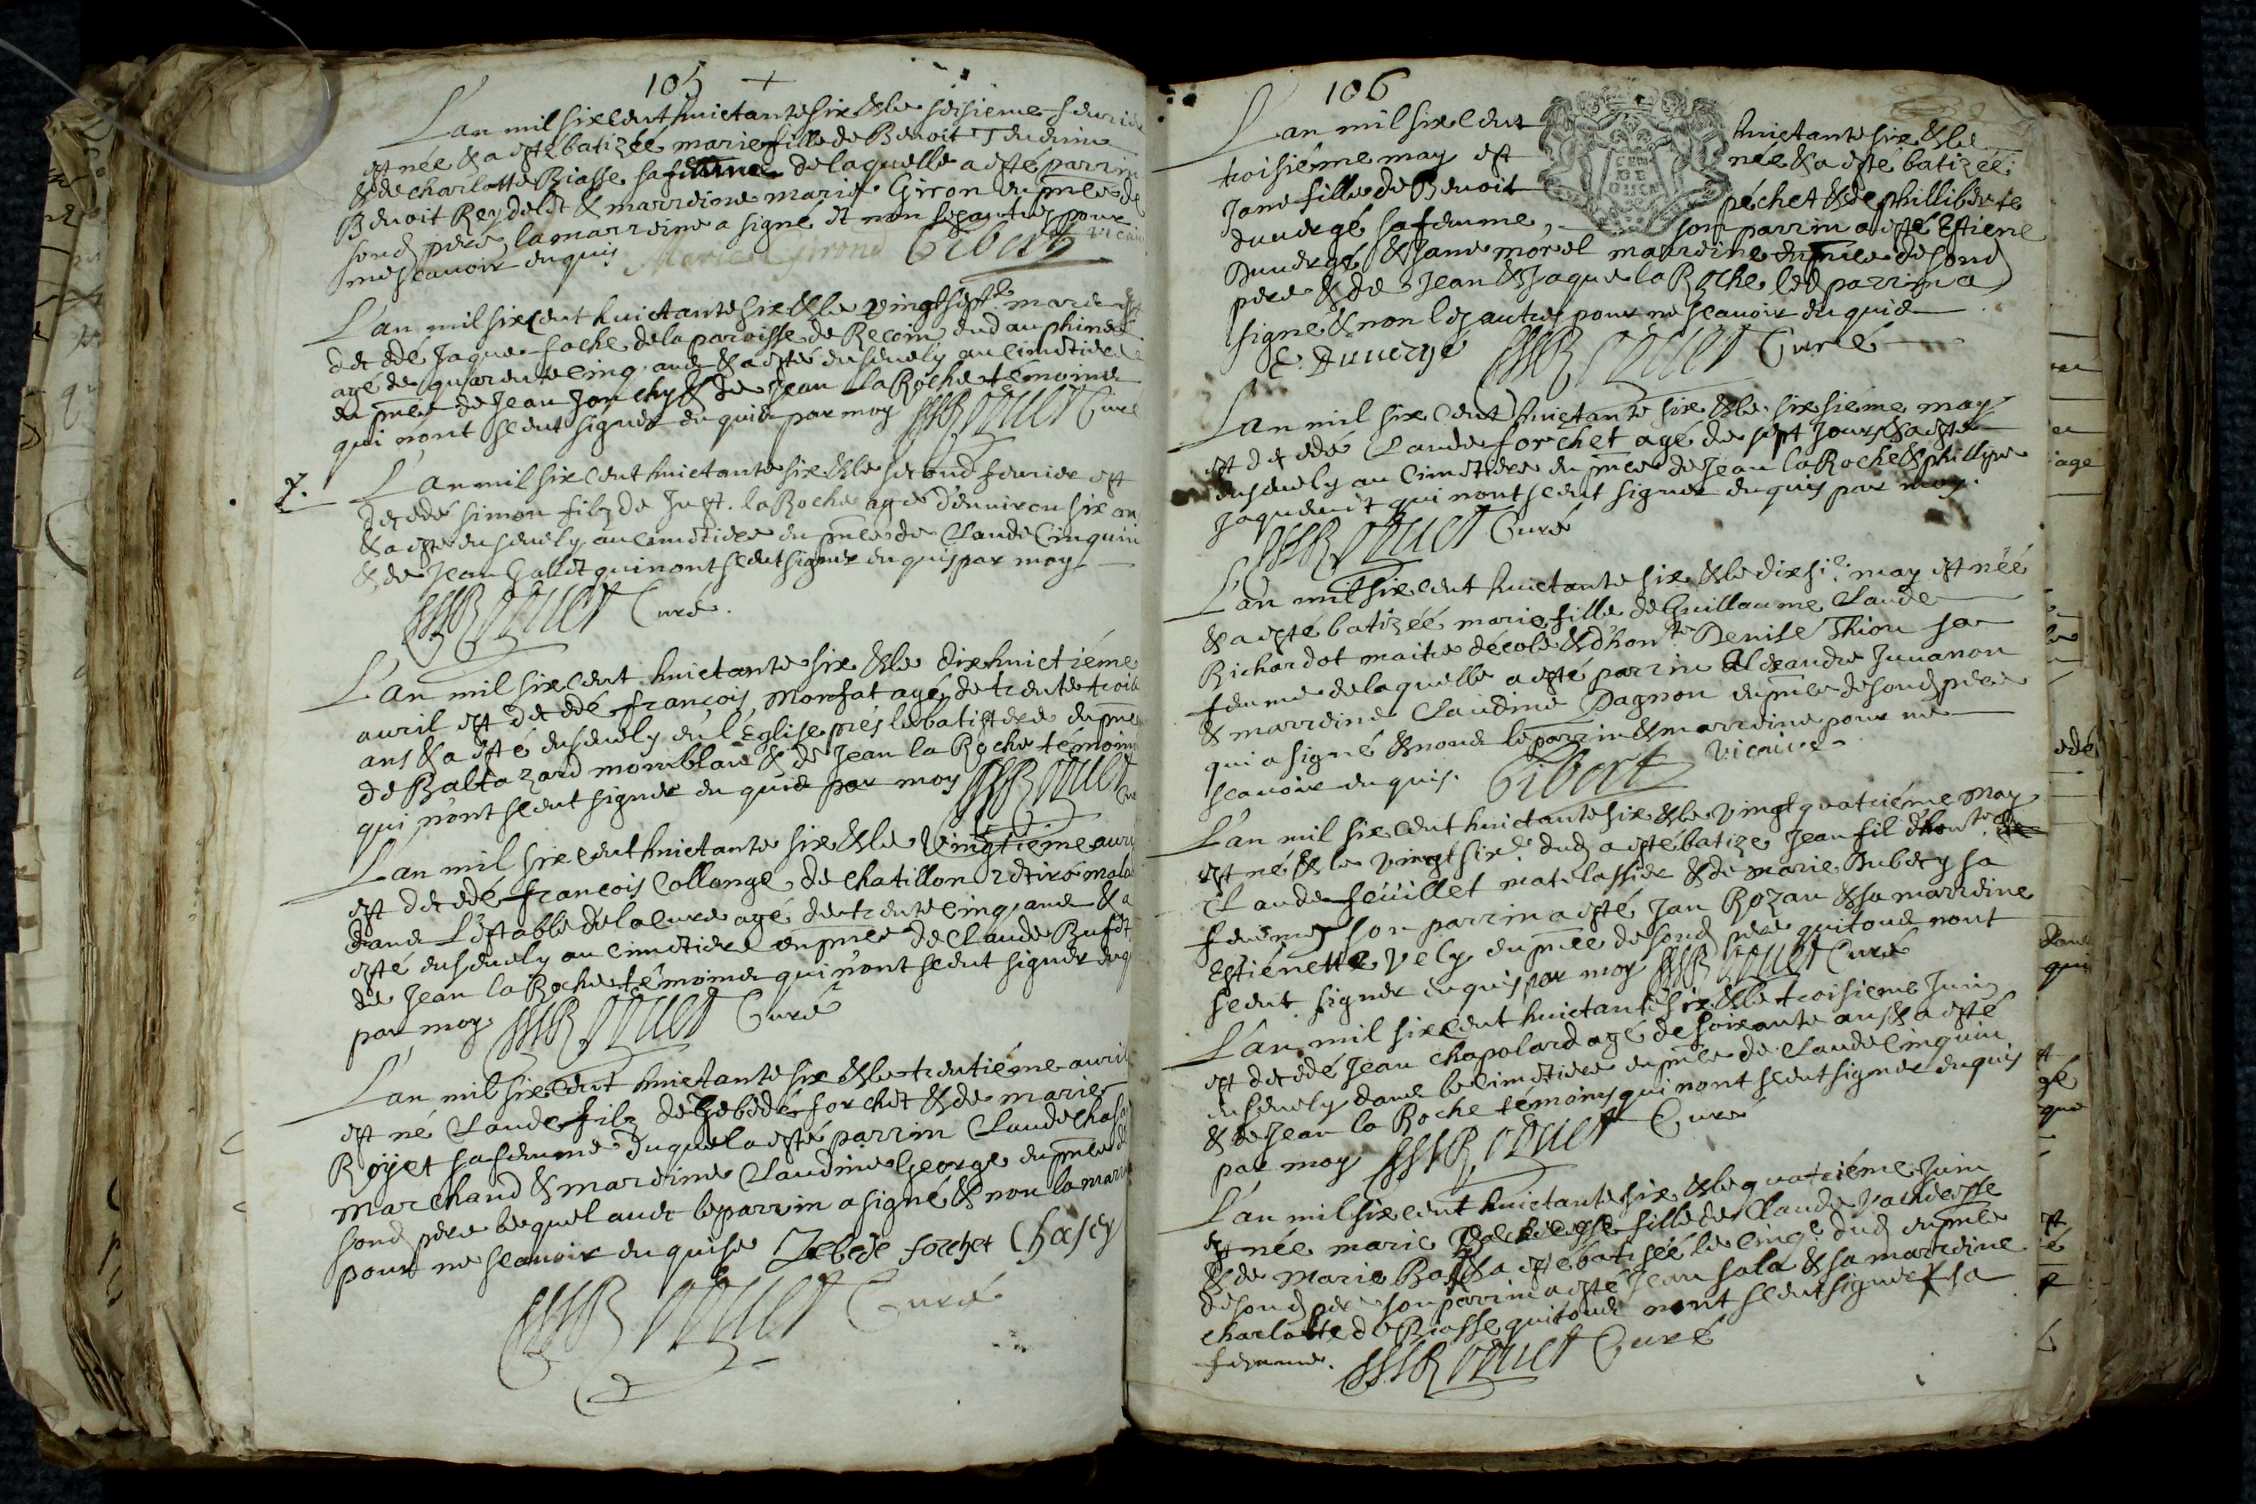 105 +
L'an mil six cent huictante six & le seisieme feurier
est née & a esté batizée marie fille de Benoit
& de charlotte Biasse sa femme de laquelle a esté parrin
Benoit Reydelet & marreine marie Giron en pnce de
sond pere la marreine a signé et non les autres pour
ne scauoir enquis Marie Girond Gibert vicaire
L'an mil six cent huictante six & le vingt sept.e mars est
decedé Jaque fache de la paroisse de Recoin en dauphiné
agé de quarente cinq ans & a esté enseuely au cimetiere
en pnce de Jean Jonchy & de Jean la Roche témoins
qui n'ont sceut signer enquis par moy Curé
L'an mil six cent huictante six & le second feurier est
decedé simon filz de Just. la Roche agé d'enuiron six ans
& a esté enseuely au cimetiere en pnce de Claude Cinquin
& de Jean Gallet qui n'ont sceut signer enquis par moy
Curé.
L'an mil six cent huictante six & le dixhuictiéme
auril est decedé françois Monfat agé de trente trois
ans & a esté enseuely en l'Eglise prés le batistere en pnce
de Baltazard monblan & de Jean la Roche témoins
qui n'ont sceut signer enquis par moy
L'an mil six cent huictante six & le vingtiéme auril
est decedé françois Collonge de chatillon retiré malade
dans l'estable de la cure agé de trente cinq ans & a
esté enseuely au cimetiere en pnce de Claude Bufet
de Jean la Roche témoins qui n'ont sceut signer enquis
par moy Curé
L'an mil six cent huictante six & le trentiéme auril
est né Claude filz de Zebedé forchet & de marie
Royet sa femme duquel a esté parrin Claude Chasey
marchand & mareine Claudine George en pnce de
sond pere lequel auec le parrin a signé & non la marreine
pour ne scauoir enquise Zebede forchet Chasey
Curé
106
L'an mil six cent huictante six & le
troisiéme may est née & a esté batizée
Jane fille de Benoit péchet & de phillib&te
duuergé sa femme, son parrin a esté Estiene
Duuergé & Jane morel marreine en pnce de sond
pere & de Jean & Jaque la Roche led parrin a
signé & non les autres pour ne scauoir enquis
E. Duuergé Curé
L'an mil six cent huictante six & le sixsieme may
est decedé Claude forchet agé de sept Jours & a esté
enseuely au cimetiere en pnce de Jean la Roche & phillipe
Jaquenet qui n'ont sceut signer enquis par moy.
Curé
L'an mil six cent huictante six & le dixsi.e may est née
& a esté batizéé marie fille de Guillaume Claude
Richardot maitre d'école & d'hon.te Denise Thion sa
femme de laquelle a esté parrin Alexandre Juuanon
& marreine Claudine Dagnon en pnce de sond pere
qui a signé & nons le parrin & marreine pour ne
scauoir enquis. Gibert vicaire
L'an mil six cent huictante six & le vingt quatriéme may
est né & le vingt six.e dud a esté batizé Jean fil d'hon.te
Claude feüillet matelassier & de marie Dubecy sa
femme son parrin a esté Jan Rozan & sa marreine
Estiénette vely en pnce de sond pere qui tous n'ont
sceut signer enquis par moy Curé
L'an mil six cent huictante six & le troisieme Juin
est decedé Jean chapolard agé de soixante ans & a esté
enseuely dans le cimetiere en pnce de Claude Cinquin
& de Jean la Roche témoins qui n'ont sceut signer enquis
par moy Curé
L'an mil six cent huictante six & le quatriéme Juin
est née marie fille de Claude
& de marie & a esté batisée le cinq.e dud en pnce
de sond pere son parrin a esté Jean sala & sa marreine
charlotte de Biasse qui tous n'ont sceut signer sa
femme. Curé